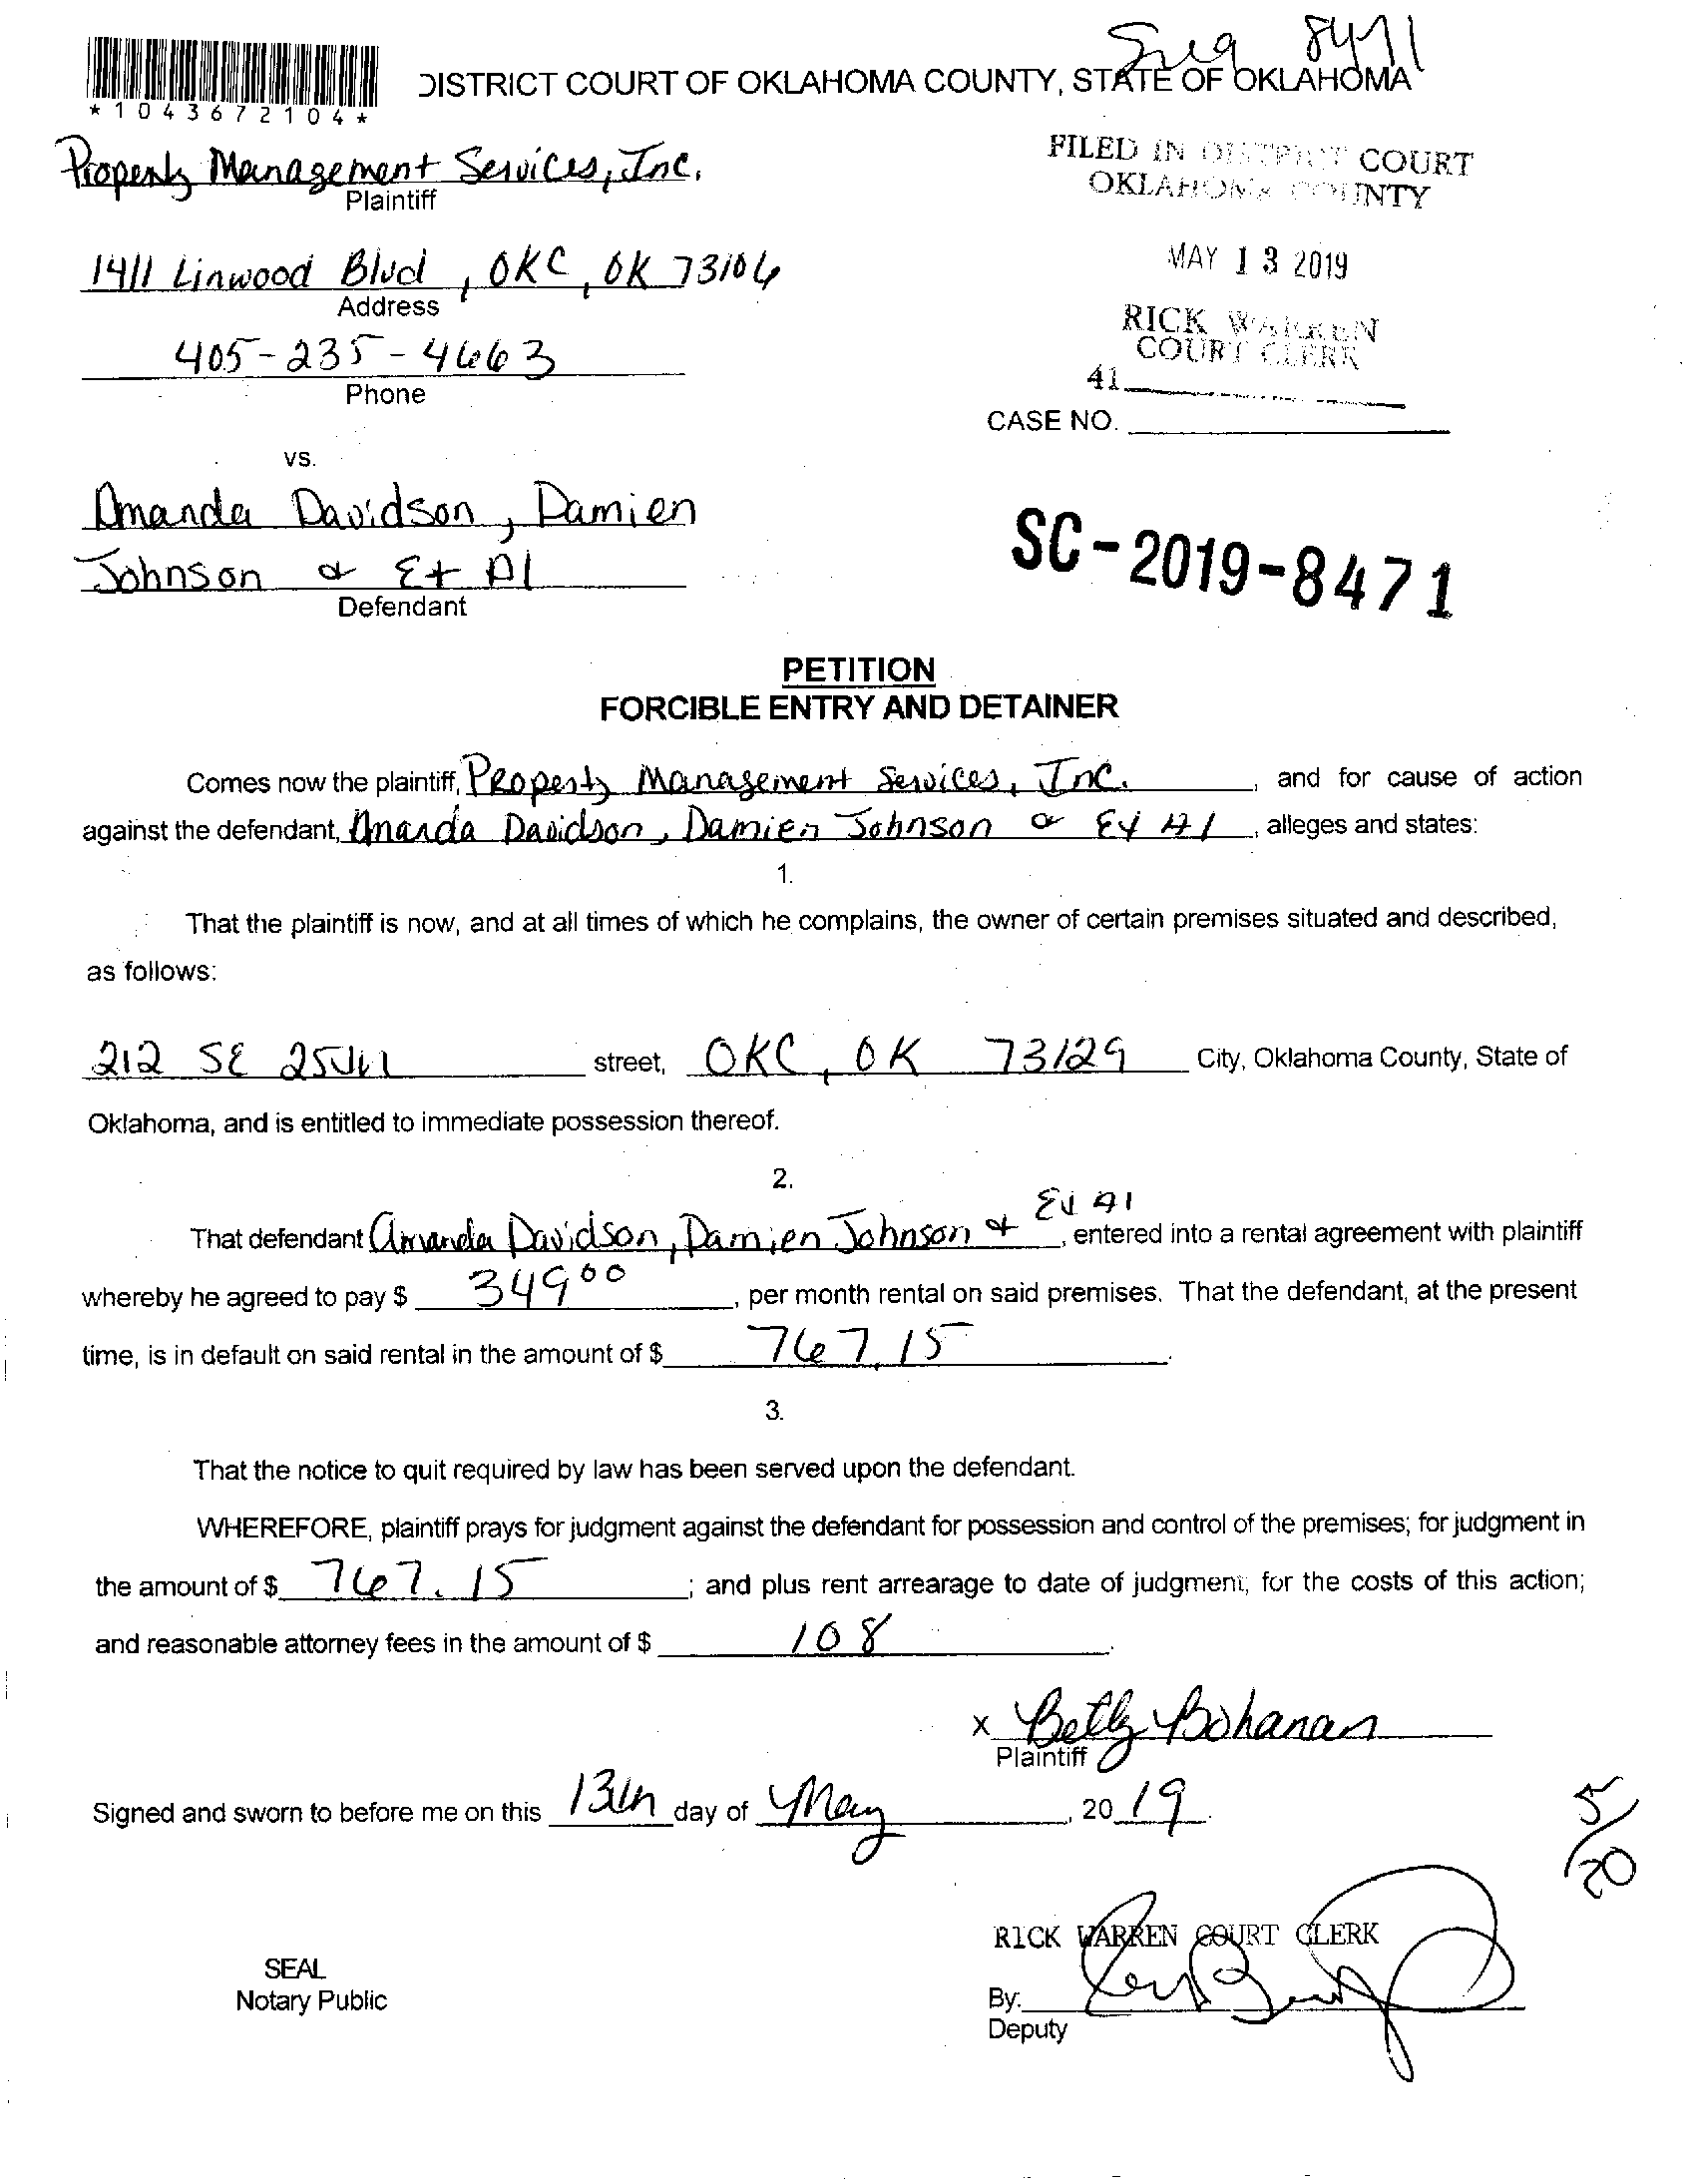 8471
*1043672104*
DISTRICT COURT OF OKLAHOMA COUNTY, STATE OF OKLAHOMA
Property Management Services, Inc.
Plaintiff
FILED IN DISTRICT COURT
OKLAHOMA COUNTY
1411 Linwood Blvd, OKC, OK 73106
Address
MAY 13 2019
405-235-4663
Phone
RICK WARREN
COURT CLERK
41
CASE NO.
vs.
Amanda Davidson, Damien
Johnson & Et Al
Defendant
SC-2019-8471
PETITION
FORCIBLE ENTRY AND DETAINER
Comes now the plaintiff, Property Management Services, Inc., and for cause of action
against the defendant, Amanda Davidson, Damien Johnson & Et Al, alleges and states:
1.
That the plaintiff is now, and at all times of which he complains, the owner of certain premises situated and described,
as follows:
212 SE 25th street, OKC, OK 73129 City, Oklahoma County, State of
Oklahoma, and is entitled to immediate possession thereof.
2.
That defendant Amanda Davidson, Damien Johnson & Et Al, entered into a rental agreement with plaintiff
whereby he agreed to pay $ 349 00, per month rental on said premises. That the defendant, at the present
time, is in default on said rental in the amount of $ 767.15.
3.
That the notice to quit required by law has been served upon the defendant.
WHEREFORE, plaintiff prays for judgment against the defendant for possession and control of the premises; for judgment in
the amount of $ 767.15; and plus rent arrearage to date of judgment; for the costs of this action;
and reasonable attorney fees in the amount of $ 108.
x Betty Bohanan
Plaintiff
Signed and sworn to before me on this 13th day of May, 20 19.
5/20
RICK WARREN COURT CLERK
SEAL
Notary Public
By:
Deputy